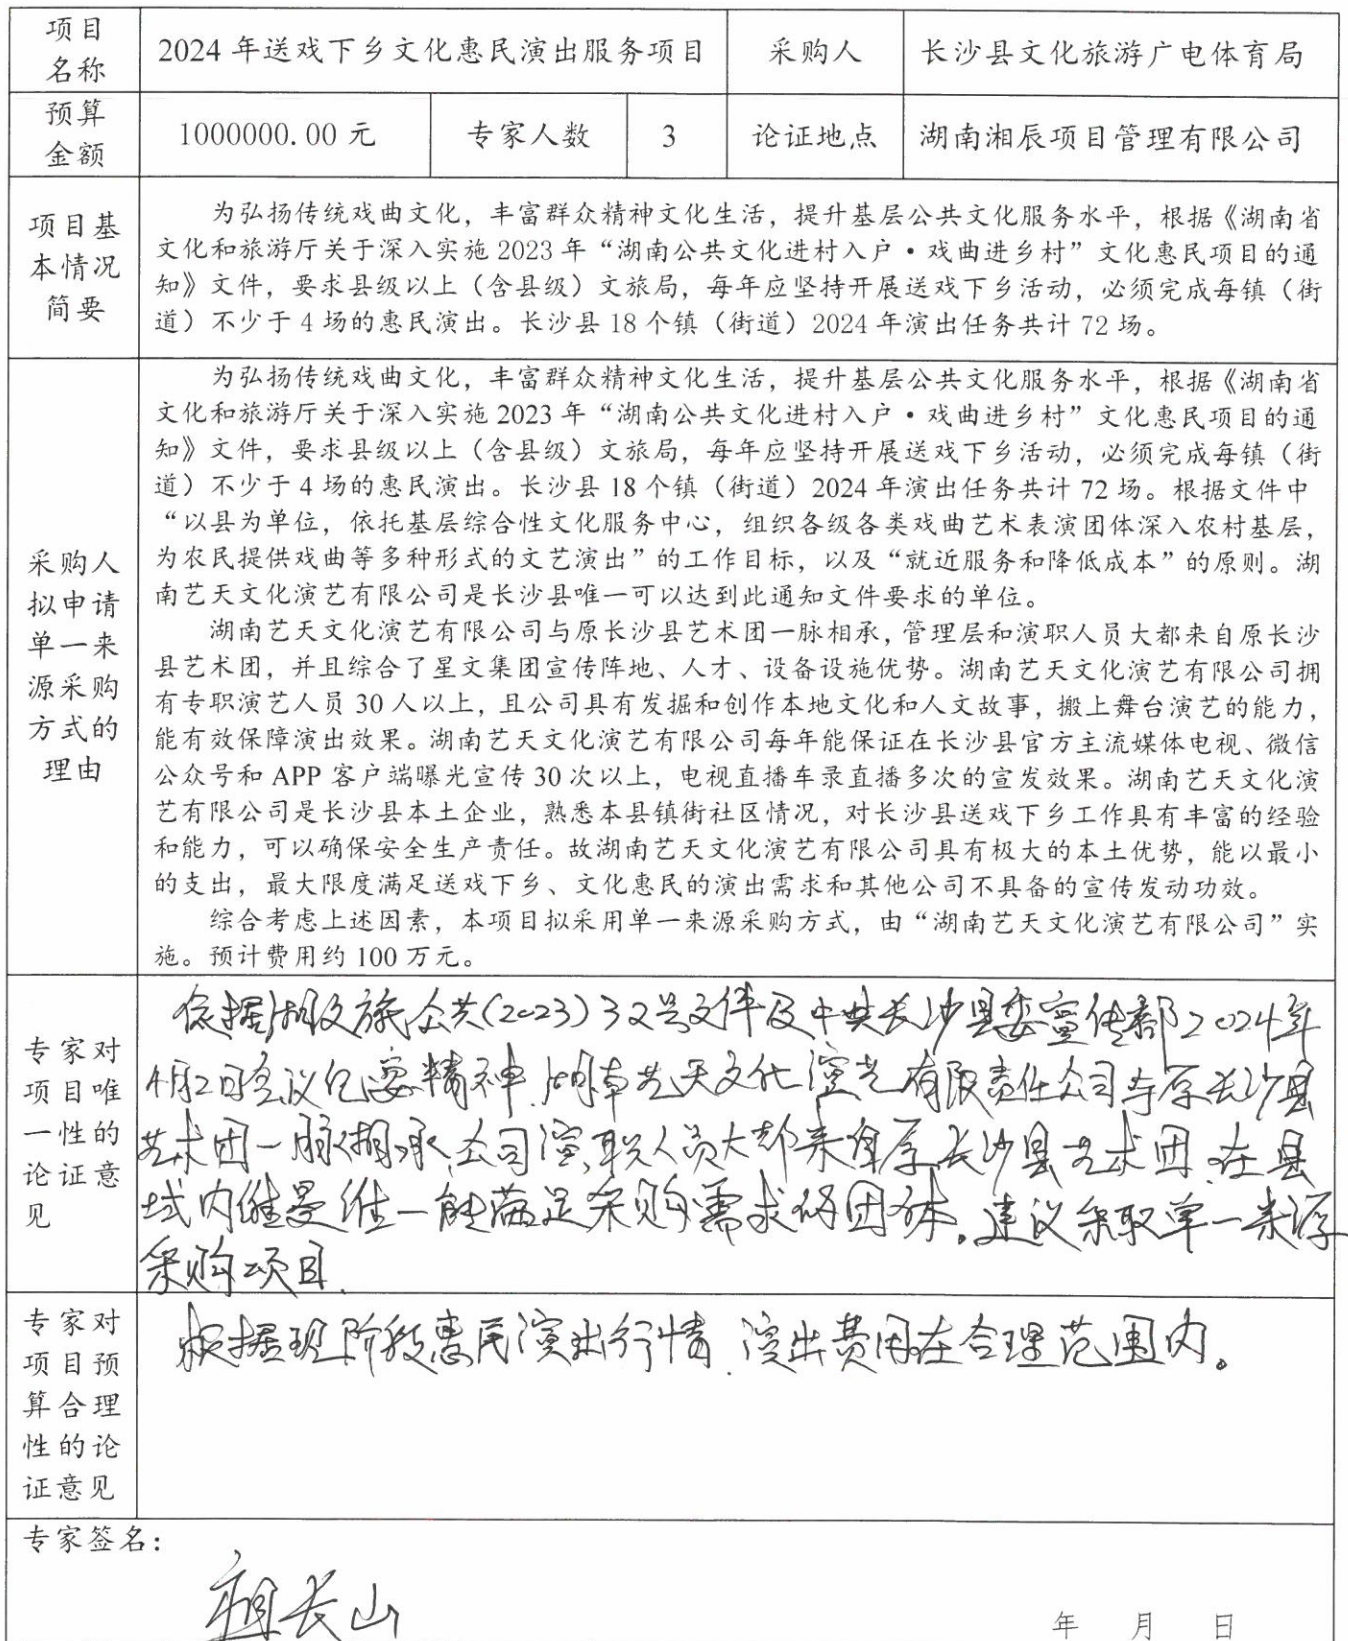 项目
名称
2024 年送戏下乡文化惠民演出服务项目
采购人
长沙县文化旅游广电体育局
预算
金额
1000000.00 元
专家人数
3
论证地点
湖南湘辰项目管理有限公司
项目基
本情况
简要
为弘扬传统戏曲文化，丰富群众精神文化生活，提升基层公共文化服务水平，根据《湖南省
文化和旅游厅关于深入实施 2023 年“湖南公共文化进村入户·戏曲进乡村”文化惠民项目的通
知》文件，要求县级以上（含县级）文旅局，每年应坚持开展送戏下乡活动，必须完成每镇（街
道）不少于 4 场的惠民演出。长沙县 18 个镇（街道）2024 年演出任务共计 72 场。
采购人
拟申请
单一来
源采购
方式的
理由
为弘扬传统戏曲文化，丰富群众精神文化生活，提升基层公共文化服务水平，根据《湖南省
文化和旅游厅关于深入实施 2023 年“湖南公共文化进村入户·戏曲进乡村”文化惠民项目的通
知》文件，要求县级以上（含县级）文旅局，每年应坚持开展送戏下乡活动，必须完成每镇（街
道）不少于 4 场的惠民演出。长沙县 18 个镇（街道）2024 年演出任务共计 72 场。根据文件中
“以县为单位，依托基层综合性文化服务中心，组织各级各类戏曲艺术表演团体深入农村基层，
为农民提供戏曲等多种形式的文艺演出”的工作目标，以及“就近服务和降低成本”的原则。湖
南艺天文化演艺有限公司是长沙县唯一可以达到此通知文件要求的单位。
湖南艺天文化演艺有限公司与原长沙县艺术团一脉相承，管理层和演职人员大都来自原长沙
县艺术团，并且综合了星文集团宣传阵地、人才、设备设施优势。湖南艺天文化演艺有限公司拥
有专职演艺人员 30 人以上，且公司具有发掘和创作本地文化和人文故事，搬上舞台演艺的能力，
能有效保障演出效果。湖南艺天文化演艺有限公司每年能保证在长沙县官方主流媒体电视、微信
公众号和 APP 客户端曝光宣传 30 次以上，电视直播车录直播多次的宣发效果。湖南艺天文化演
艺有限公司是长沙县本土企业，熟悉本县镇街社区情况，对长沙县送戏下乡工作具有丰富的经验
和能力，可以确保安全生产责任。故湖南艺天文化演艺有限公司具有极大的本土优势，能以最小
的支出，最大限度满足送戏下乡、文化惠民的演出需求和其他公司不具备的宣传发动功效。
综合考虑上述因素，本项目拟采用单一来源采购方式，由“湖南艺天文化演艺有限公司”实
施。预计费用约 100 万元。
专家对
项目唯
一性的
论证意
见
依据湘文旅公共(2023)32号文件及中共长沙县委宣传部2024年
4月2日会议纪要精神.湖南艺天文化演艺有限责任公司与原长沙县
艺术团一脉相承,公司演职人员大都来自原长沙县艺术团.在县
域内唯一能满足采购需求的团体。建议采取单一来源
采购项目.
专家对
项目预
算合理
性的论
证意见
根据现阶段惠民演出行情.演出费用在合理范围内。
专家签名：
长山
年 月 日